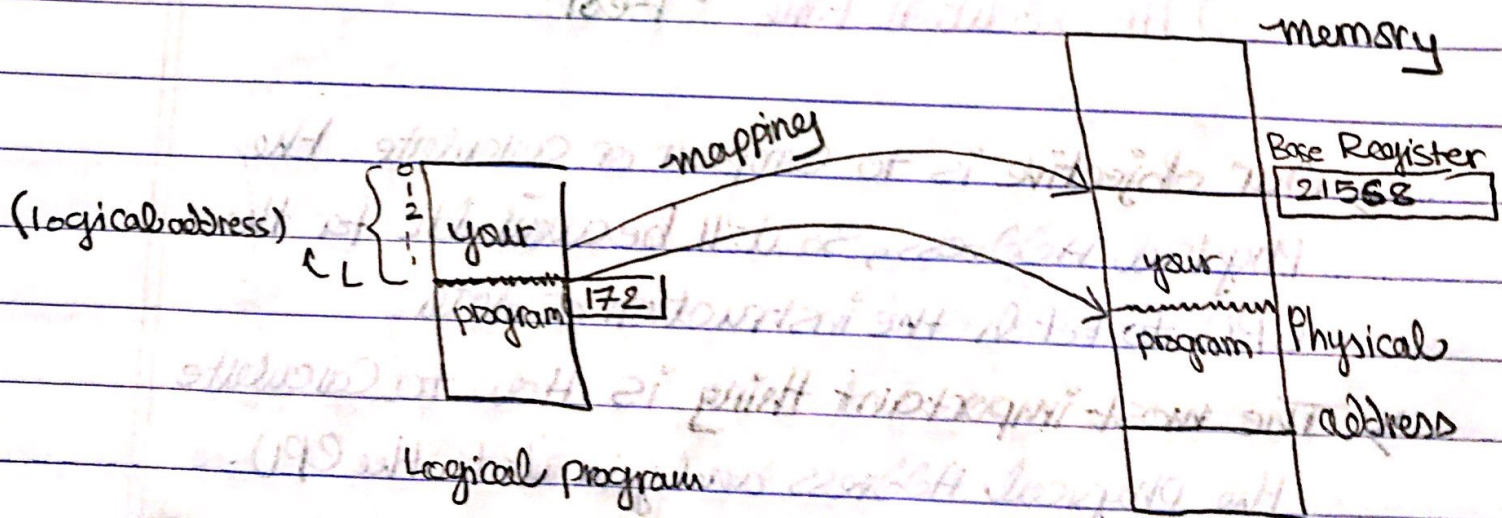 memory
mapping
Base Register
21568
(Logical address)
0
1
2
L
your
program
172
your
program
Physical
address
Logical program